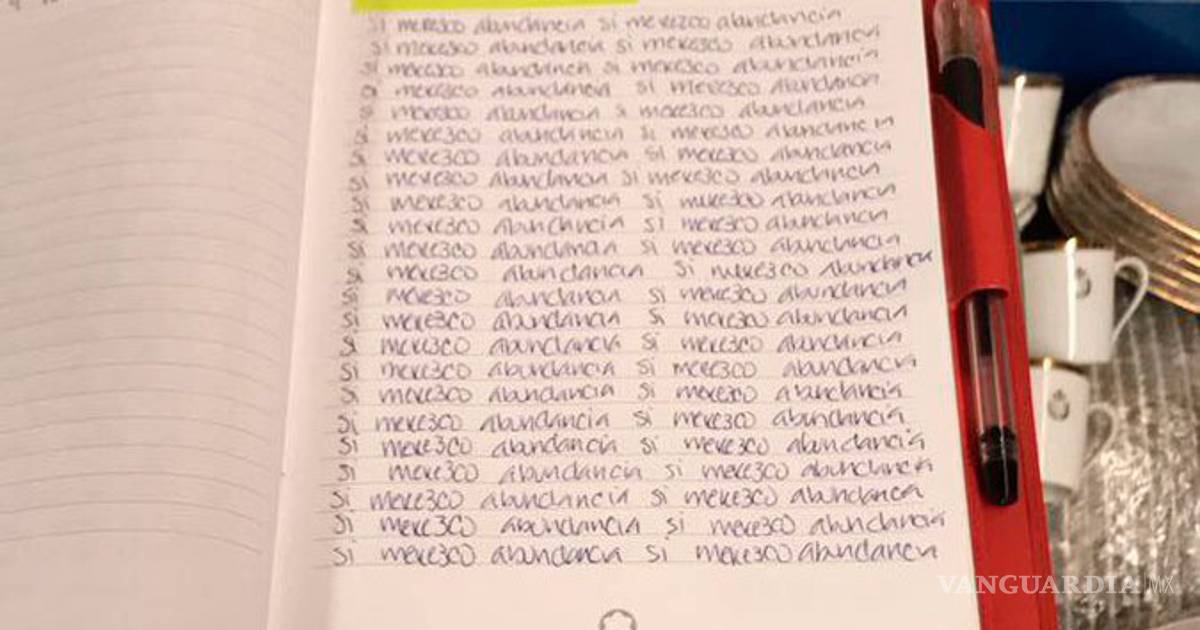 si merezco abundancia si merezco abundancia
si merezco abundancia si merezco abundancia
si merezco abundancia si merezco abundancia
si merezco abundancia si merezco abundancia
si merezco abundancia si merezco abundancia
si merezco abundancia si merezco abundancia
si merezco abundancia si merezco abundancia
si merezco abundancia si merezco abundancia
si merezco abundancia si merezco abundancia
si merezco abundancia si merezco abundancia
si merezco abundancia si merezco abundancia
si merezco abundancia si merezco abundancia
si merezco abundancia si merezco abundancia
si merezco abundancia si merezco abundancia
si merezco abundancia si merezco abundancia
si merezco abundancia si merezco abundancia
si merezco abundancia si merezco abundancia
si merezco abundancia si merezco abundancia
si merezco abundancia si merezco abundancia
si merezco abundancia si merezco abundancia
si merezco abundancia si merezco abundancia
si merezco abundancia si merezco abundancia
si merezco abundancia si merezco abundancia
VANGUARDIA MX